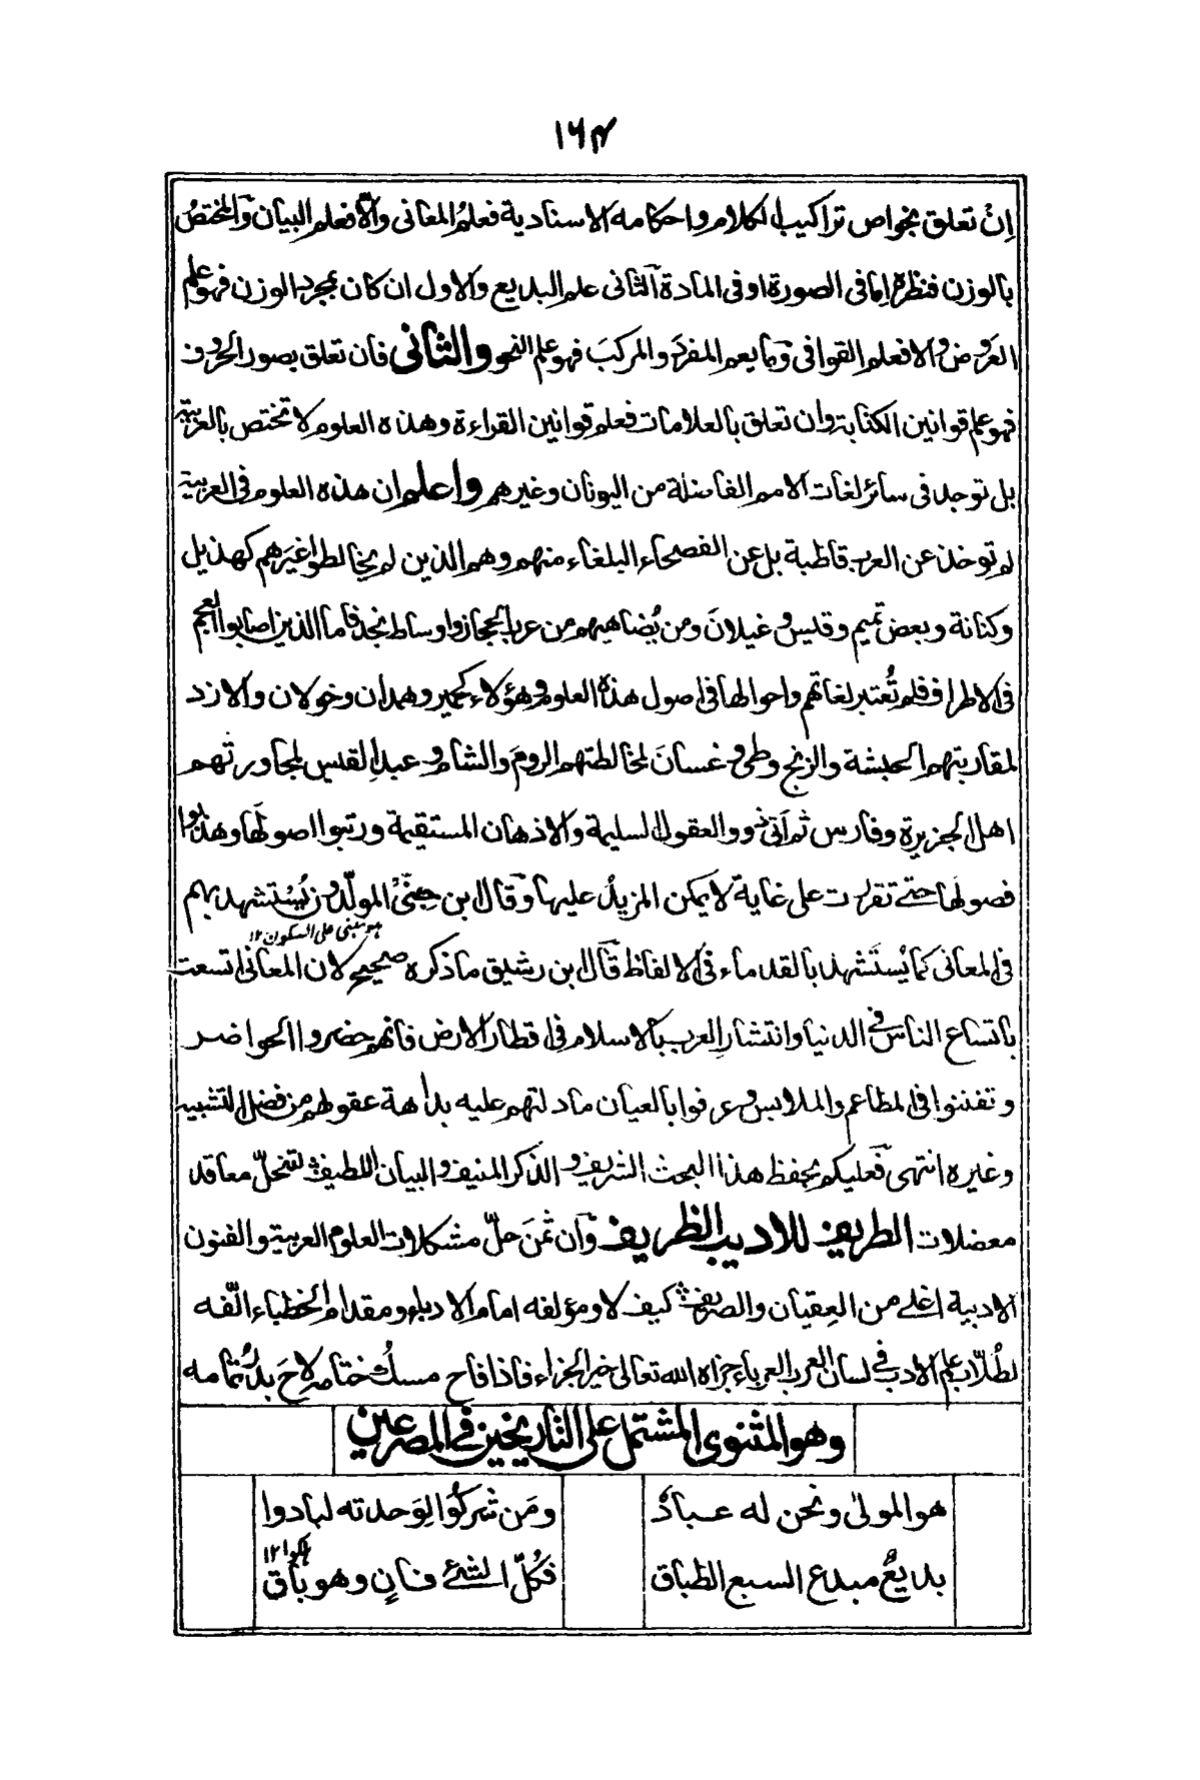 ١٦٤
اِنْ تعلق بخواص تراكيب الكلام واحكامه الاسنادية فعلمُ المعانى والّا فعلم البيان والمختصُ
بالوزن فنظرُه اِما فى الصورة او فى المادة الثانى علم البديع والاول ان كان بمجرد الوزن فهو علم
العروض والا فعلم القوافى وما يعم المفردَ والمركبَ فهو علم النحو والثانى فان تعلق بصور الحروف
فهو علم قوانين الكتابة وان تعلق بالعلامات فعلم قوانين القراءة وهذه العلوم لا تختص بالعربية
بل توجد فى سائر لغات الامم الفاضلة من اليونان وغيرهم واعلم ان هذه العلوم فى العربية
لم توخذ عن العرب قاطبة بل عن الفصحاء البلغاء منهم وهم الذين لم يخالطوا غيرَهم كهذيل
وكنانة وبعض تميم وقيس و غيلانَ ومن يُضاهيهم من عرب الحجاز واوساط نجد فاما الذين اصابوا العجم
فى الاطراف فلم تُعتبر لغاتهم واحوالها فى اصول هذه العلوم وهؤلاء كحمير وهمدان وخولان والازد
لمقاربتهم الحبشة والزنج وطى و غسانَ لمخالطتهم الرومَ والشام و عبدِ القيس لمجاورتهم
اهل الجزيرة وفارس ثم اتى ذوو العقول السليمة والاذهان المستقيمة ورتبوا اصولَها وهذبوا
فصولَها حتى تقررت على غاية لا يمكن المزيدُ عليها وقال ابن جِنّىْ المولّدون يُسْتشهد بهم
هو مبنى على السكون ١٢
فى المعانى كما يُسْتَشهد بالقدماء فى الالفاظ قال ابن رشيق ما ذكره صحيح لان المعانى اتسعت
باتساع الناس فى الدنيا وانتشارِ العرب بالاسلام فى اقطار الارض فانهم حضروا الحواضر
وتفننوا فى المطاعم والملابس و عرفوا بالعيان ما دلتهم عليه بداهة عقولهم من فضل التشبيه
وغيره انتهى فعليكم بحفظ هذا البحث الشريف و الذكر المنيف و البيان اللطيف لتنحلّ معاقد
معضلات الطريف للاديب الظريف وان ثَمَنَ حلّ مشكلات العلوم العربية والفنون
الادبية اغلى من العِقيان والصريف كيف لا ومؤلفه امام الادباء ومقدام الخطباء الّفه
لطُلّاب علم الادب فى لسان العرب العرباء جزاه الله تعالى خير الجزاء فاذا فاح مسكُ ختامه لاحَ بدرُ تمامه
وهو المثنوى المشتمل على التاريخين فى المصرعين
هو المولٰى ونحن له عبادٗ
ومَن شركُوْا لِوَحدته لبادوا
هلكوا ١٢
بديعٌ مبدع السبع الطباق
فكُلّ الشئ فانٍ وهو باقٍ